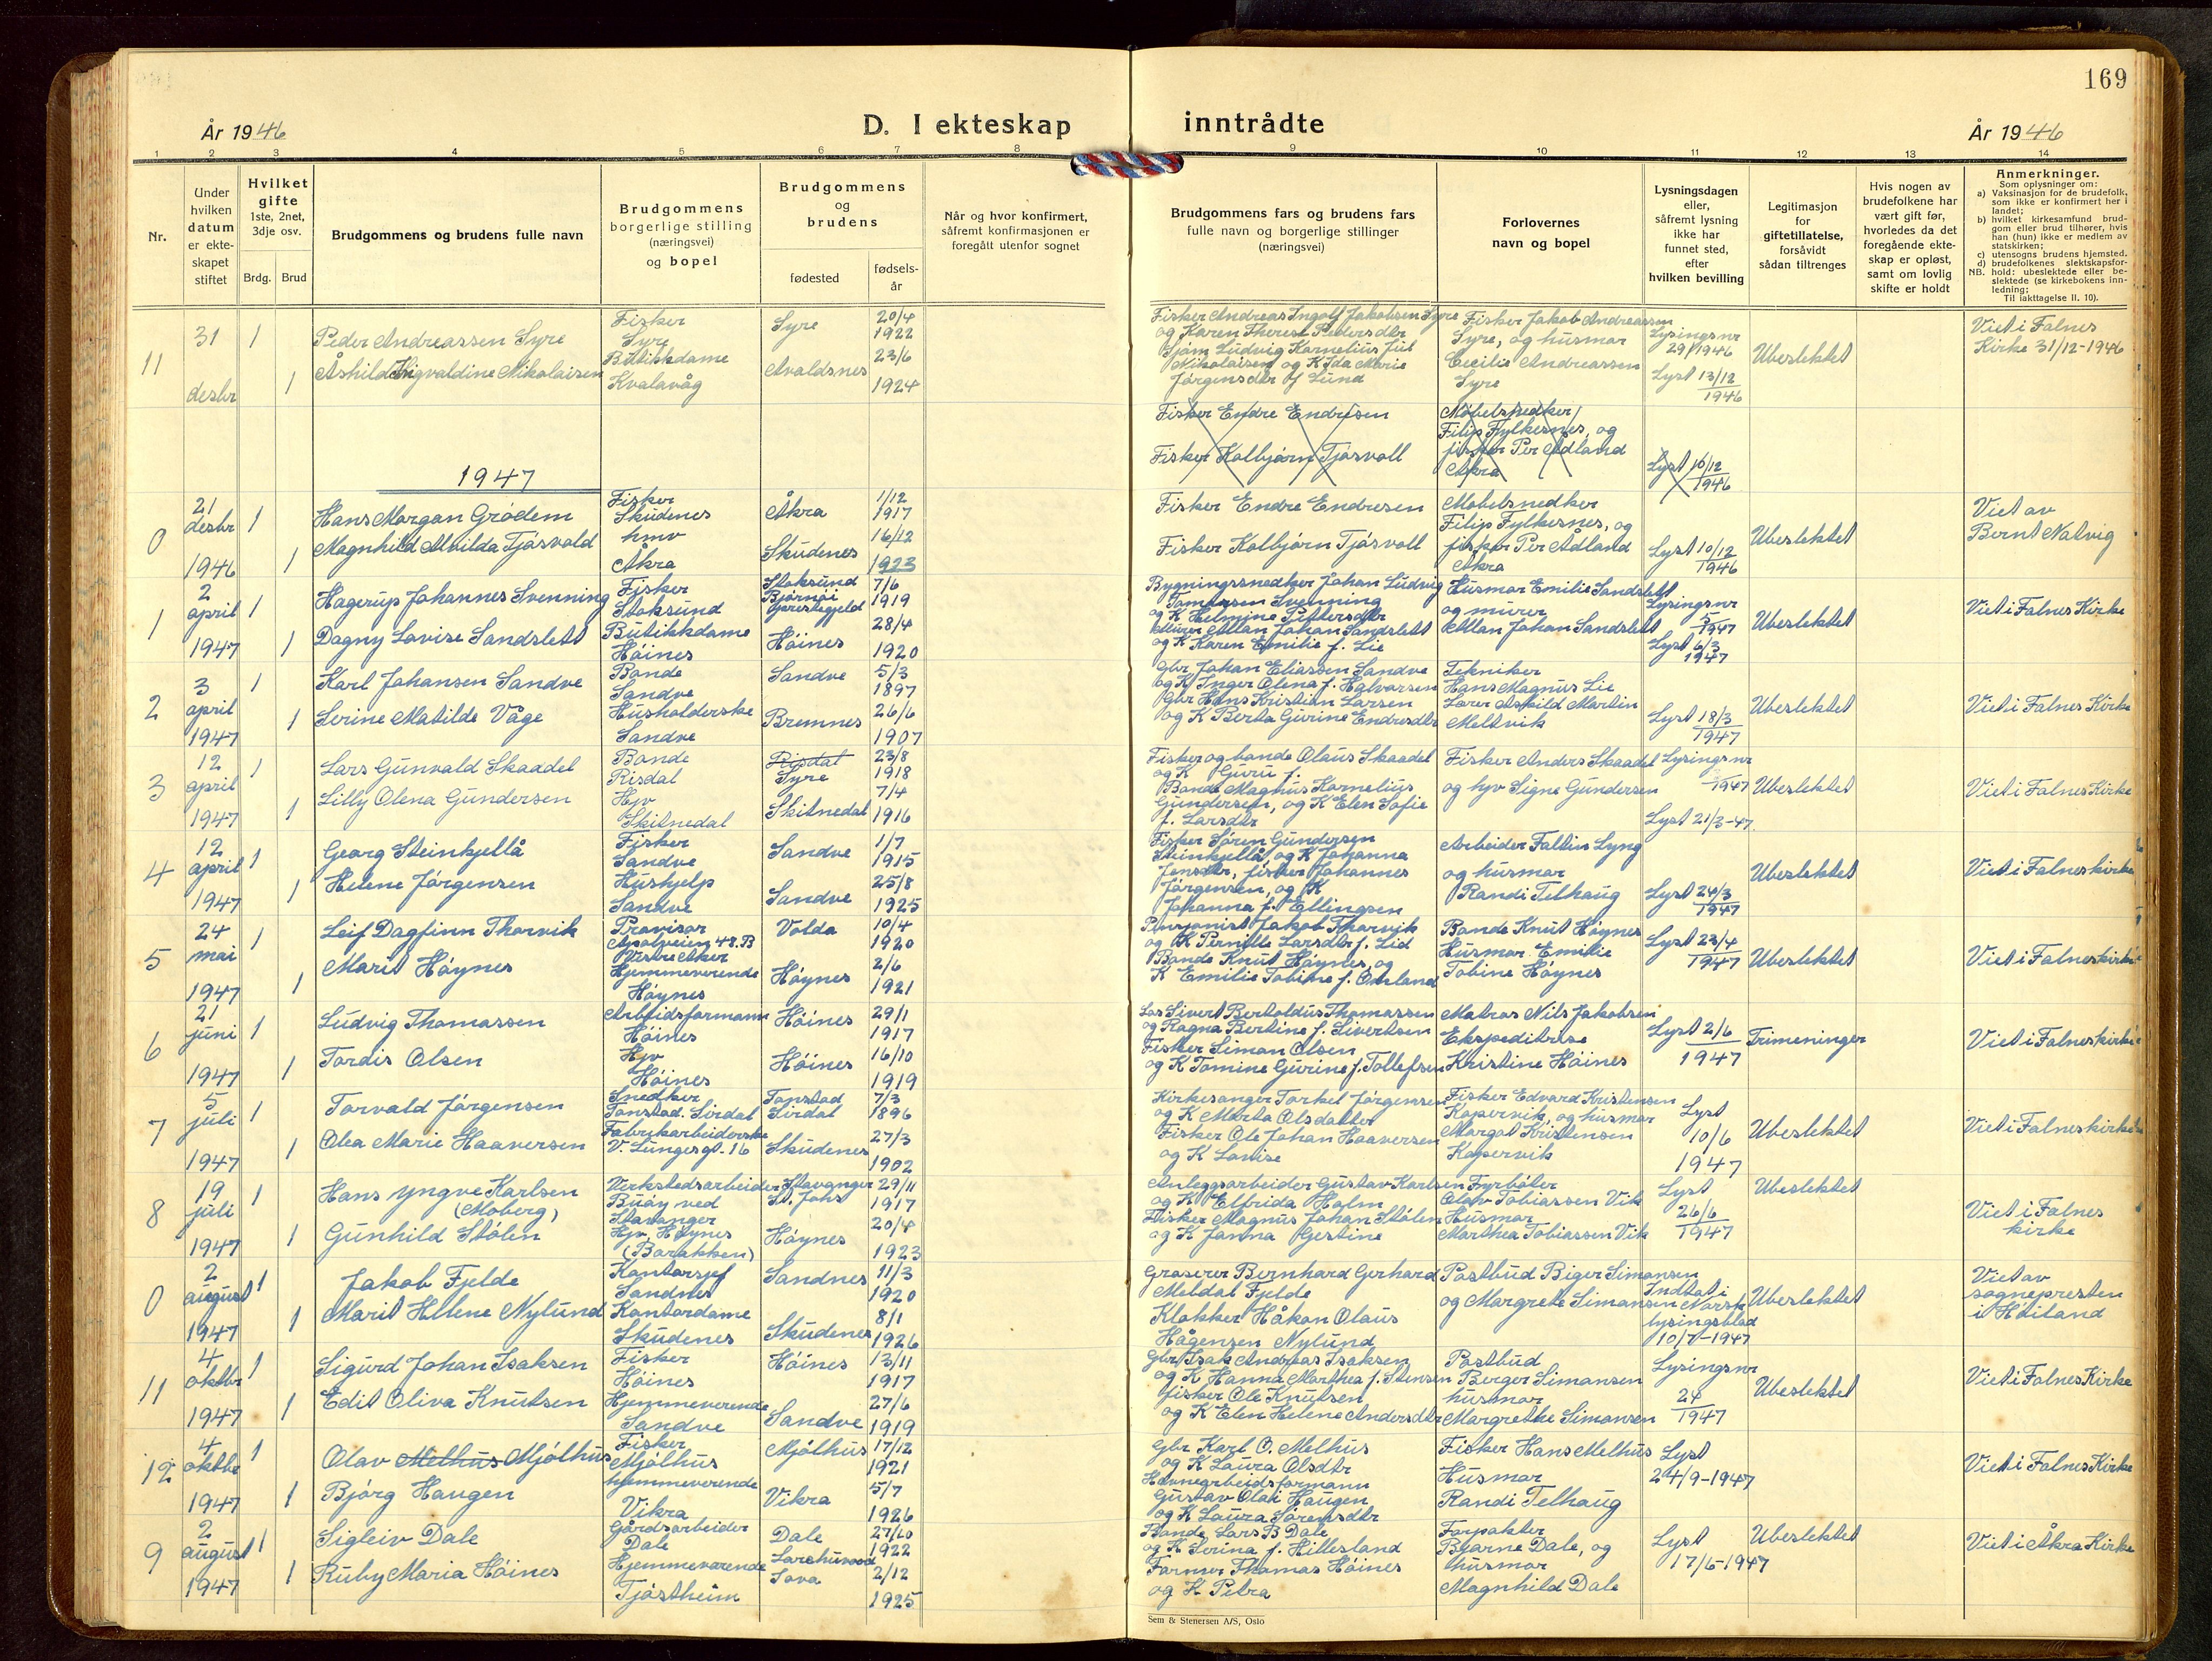 169
År 1946
D. I ekteskap inntrådte
År 1946
1 2 3 4 5 6 7 8 9 10 11 12 13 14
Nr.
Under hvilken datum er ekteskapet stiftet
Hvilket gifte 1ste, 2net, 3dje osv.
Brdg. Brud
Brudgommens og brudens fulle navn
Brudgommens borgerlige stilling (næringsvei) og bopel
Brudgommens og brudens
fødested
fødselsår
Når og hvor konfirmert, såfremt konfirmasjonen er foregått utenfor sognet
Brudgommens fars og brudens fars fulle navn og borgerlige stillinger (næringsvei)
Forlovernes navn og bopel
Lysningsdagen eller, såfremt lysning ikke har funnet sted, efter hvilken bevilling
Legitimasjon for giftetillatelse, forsåvidt sådan tiltrenges
Hvis nogen av brudefolkene har vært gift før, hvorledes da det foregående ekteskap er opløst, samt om lovlig skifte er holdt
Anmerkninger.
Som oplysninger om:
a) Vaksinasjon for de brudefolk, som ikke er konfirmert her i landet;
b) hvilket kirkesamfund brudgom eller brud tilhører, hvis han (hun) ikke er medlem av statskirken;
c) utensogns brudens hjemsted.
d) brudefolkenes slektskapsforhold: ubeslektede eller beslektede (se kirkebokens innledning;
NB. Til iakttagelse II. 10).
11 31 desbr 1 1
Peder Andreassen Syre
Åshild Ingvaldine Nikolaisen
Fisker Syre
Butikkdame Kvalavåg
Syre 20/4 1922
Avaldsnes 23/6 1924
Fisker Andreas Ingolf Jakobsen Syre
og Karen Therese Pedersdtr
Sjøm Ludvig Kornelius Jul
Nikolaisen og K Ida Marie
Jørgensdtr f Lund
Fisker Jakob Andreassen
Syre, og husmor
Cecilie Andreassen
Syre
Lysingsnr 29/1946
Lyst 13/12 1946
Ubeslektet
Viet i Falnes Kirke 31/12-1946
Fisker Endre Endresen
Fisker Kolbjørn Tjøsvoll
Møbelsnedker
Filip Fylkesnes, og
fisker Per Ådland
Åkra
Lyst 10/12 1946
1947
0 21 desbr 1946 1 1
Hans Morgan Grødem
Magnhild Alvilda Tjøsvold
Fisker Skudenes
hmv Åkra
Åkra 1/12 1917
Skudenes 16/12 1923
Fisker Endre Endresen
Fisker Kolbjørn Tjøsvoll
Møbelsnedker
Filip Fylkesnes, og
fisker Per Ådland
Åkra
Lyst 10/12 1946
Ubeslektet
Viet av Bernt Natvig
1 2 april 1947 1 1
Hagerup Johannes Svenning
Dagny Lovise Sandslett
Fisker Stoksund
Butikkdame Høines
Stoksund Bjørnøi 7/6 1919
Høines 28/4 1920
Bygningssnedker Johan Ludvig
Svenning
og K Helmine Pettersdtr
Murer Allan Johan Sandslett
og K Karen Emilie f. Lie
Husmor Emilie Sandslett
og murer
Allan Johan Sandslett
Lysingsnr 5 1947
Lyst 6/3 1947
Ubeslektet
Viet i Falnes Kirke
2 3 april 1947 1 1
Karl Johansen Sandve
Serine Matilde Våge
Bonde Sandve
Husholderske Sandve
Sandve 5/3 1897
Bremnes 26/6 1907
Gbr Johan Eliassen Sandve
og K Inger Olena f. Halvorsen
Gbr Hans Kristian Larsen
og K Berta Gurine Endresdtr
Tekniker
Hans Magnus Lie
Lærer Atskild Martin
Meltvik
Lyst 18/3 1947
Ubeslektet
Viet i Falnes Kirke
3 12 april 1947 1 1
Lars Gunvald Skaadel
Lilly Olena Gundersen
Bonde Risdal
Hjv Skitnedal
Risdal Syre 23/8 1918
Skitnedal 7/4 1916
Fisker og bonde Olaus Skaadel
og K Guru f.
Bonde Magnus Kornelius
Gundersen, og K Elen Sofie
f. Larsdtr
Fisker Anders Skaadel
og hjv Signe Gundersen
Lysingsnr 1947
Lyst 21/3-47.
Ubeslektet
Viet i Falnes Kirke
4 12 april 1947 1 1
Georg Steinkjellå
Helene Jørgensen
Fisker Sandve
Hushjelp Sandve
Sandve 1/7 1915
Sandve 25/8 1925
Fisker Søren Gundersen
Steinkjellå, og K Johanna
Jensdtr, fisker Johannes
Jørgensen, og K
Johanna f. Ellingsen
Arbeider Faltin Lyng
og husmor
Randi Telhaug
Lyst 24/3 1947
Ubeslektet
Viet i Falnes kirke
5 24 mai 1947 1 1
Leif Dagfinn Thorvik
Marit Høynes
Provisor
Apalveien 48.B
Vestre Aker
Hjemmeværende Høynes
Volda 10/4 1920
Høynes 2/6 1921
Pensjonist Jakob Thorvik
og K Pernille Larsdtr f. Lid
Bonde Knut Høynes, og
K Emilie Tobine f. Omland
Bonde Knut Høynes
Husmor Emilie
Tobine Høynes
Lyst 23/4 1947
Ubeslektet
Viet i Falnes kirke
6 21 juni 1947 1 1
Ludvig Thomassen
Tordis Olsen
Arbeidsformann Høines
Hjv Høines
Høines 29/1 1917
Høines 16/10 1919
Los Sivert Bertoldus Thomassen
og Ragna Bertine f. Sivertsen
Fisker Simon Olsen
og K Tomine Gurine f. Tollefsen
Matros Nils Jakobsen
Ekspeditrise
Kristine Høines
Lyst 2/6 1947
Trimeninger
Viet i Falnes kirke
7 5 juli 1947 1 1
Torvald Jørgensen
Olea Marie Haaversen
Snedker Tonstad. Sirdal
Fabrikarbeiderske
V. Lunges gt. 16
Tonstad Sirdal 7/3 1896
Skudenes 27/3 1902
Kirkesanger Torkel Jørgensen
og K Marta Olsdatter
Fisker Ole Johan Haaversen
og K Lovise
Fisker Edvard Kristensen
Kopervik, og husmor
Margot Kristensen
Kopervik
Lyst 10/6 1947
Ubeslektet
Viet i Falnes kirke
8 19 juli 1947 1 1
Hans Yngve Karlsen
(Moberg)
Gunhild Stølen
Verkstedsarbeider
Buøy ved
Stavanger
Hjv. Høynes
(Barakken)
Stavanger St. Johs 29/11 1917
Høynes 20/4 1923
Anleggsarbeider Gustav Karlsen
og K Elfrida Holm
Fisker Magnus Johan Stølen
og K Janna Gjestine
Fyrbøter
Olav Tobiassen Vik
Husmor
Marthea Tobiassen Vik
Lyst 26/6 1947
Ubeslektet
Viet i Falnes kirke
0 2 august 1947 1 1
Jakob Fjelde
Marit Helene Nylund
Kontorsjef Sandnes
Kontordame Skudenes
Sandnes 11/3 1920
Skudenes 8/1 1926
Graserer Bernhard Gerhard
Meldal Fjelde
Klokker Håkon Olaus
Hågensen Nylund
Postbud Biger Simonsen
og Margrete Simonsen
Indtat i Norsk lysingsblad 10/7-1947
Ubeslektet
Viet av sognepresten i Høiland
11 4 oktbr 1947 1 1
Sigurd Johan Isaksen
Edit Oliva Knutsen
Fisker Høines
Hjemmeværende Sandve
Høines 13/11 1917
Sandve 27/6 1919
Gbr Isak Andreas Isaksen
og K Hanna Marthea f. Stensen
fisker Ole Knutsen
og K Elen Helene Andersdtr
Postbud
Berger Simonsen
husmor
Margrethe Simonsen
Lysingsnr 24 1947
Ubeslektet
Viet i Falnes Kirke
12 4 oktbr 1947 1 1
Olav Melhus Mjølhus
Bjørg Haugen
Fisker Mjølhus
hjemmeværende Vikra
Mjølhus 17/12 1921
Vikra 5/7 1926
Gbr Karl O. Melhus
og K Laura Olsdtr
Havnearbeidsformann
Gustav Olai Haugen
og K Laura Sørensdtr
Fisker Hans Melhus
Husmor
Randi Telhaug
Lyst 24/9-1947
Viet i Falnes Kirke
9 2 august 1947 1 1
Sigleiv Dale
Ruby Maria Høines
Gårdsarbeider Dale
Hjemmeværende Tjøstheim
Dale 27/10 1922
Iova 2/12 1925
Bonde Lars B Dale
og K Serina f. Hillesland
Farmer Thomas Høines
og K Petra
Forpakter
Bjarne Dale, og
husmor
Magnhild Dale
Lyst 17/6-1947
Ubeslektet
Viet i Åkra Kirke
Sem & Stenersen A/S, Oslo